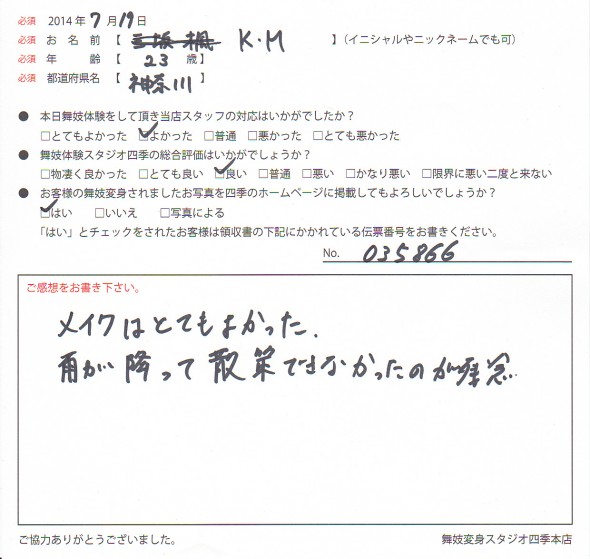 必須 2014年7月19日
必須 お名前【 K・M 】(イニシャルやニックネームでも可)
必須 年齢【 23 歳】
必須 都道府県名【 神奈川 】
● 本日舞妓体験をして頂き当店スタッフの対応はいかがでしたか?
□とてもよかった ☑よかった □普通 □悪かった □とても悪かった
● 舞妓体験スタジオ四季の総合評価はいかがでしょうか?
□物凄く良かった □とても良い ☑良い □普通 □悪い □かなり悪い □限界に悪い二度と来ない
● お客様の舞妓変身されましたお写真を四季のホームページに掲載してもよろしいでしょうか?
☑はい □いいえ □写真による
「はい」とチェックをされたお客様は領収書の下記にかかれている伝票番号をお書きください。
No. 035866
ご感想をお書き下さい。
メイクはとてもよかった.
雨が降って散策できなかったのが残念
ご協力ありがとうございました。 舞妓変身スタジオ四季本店